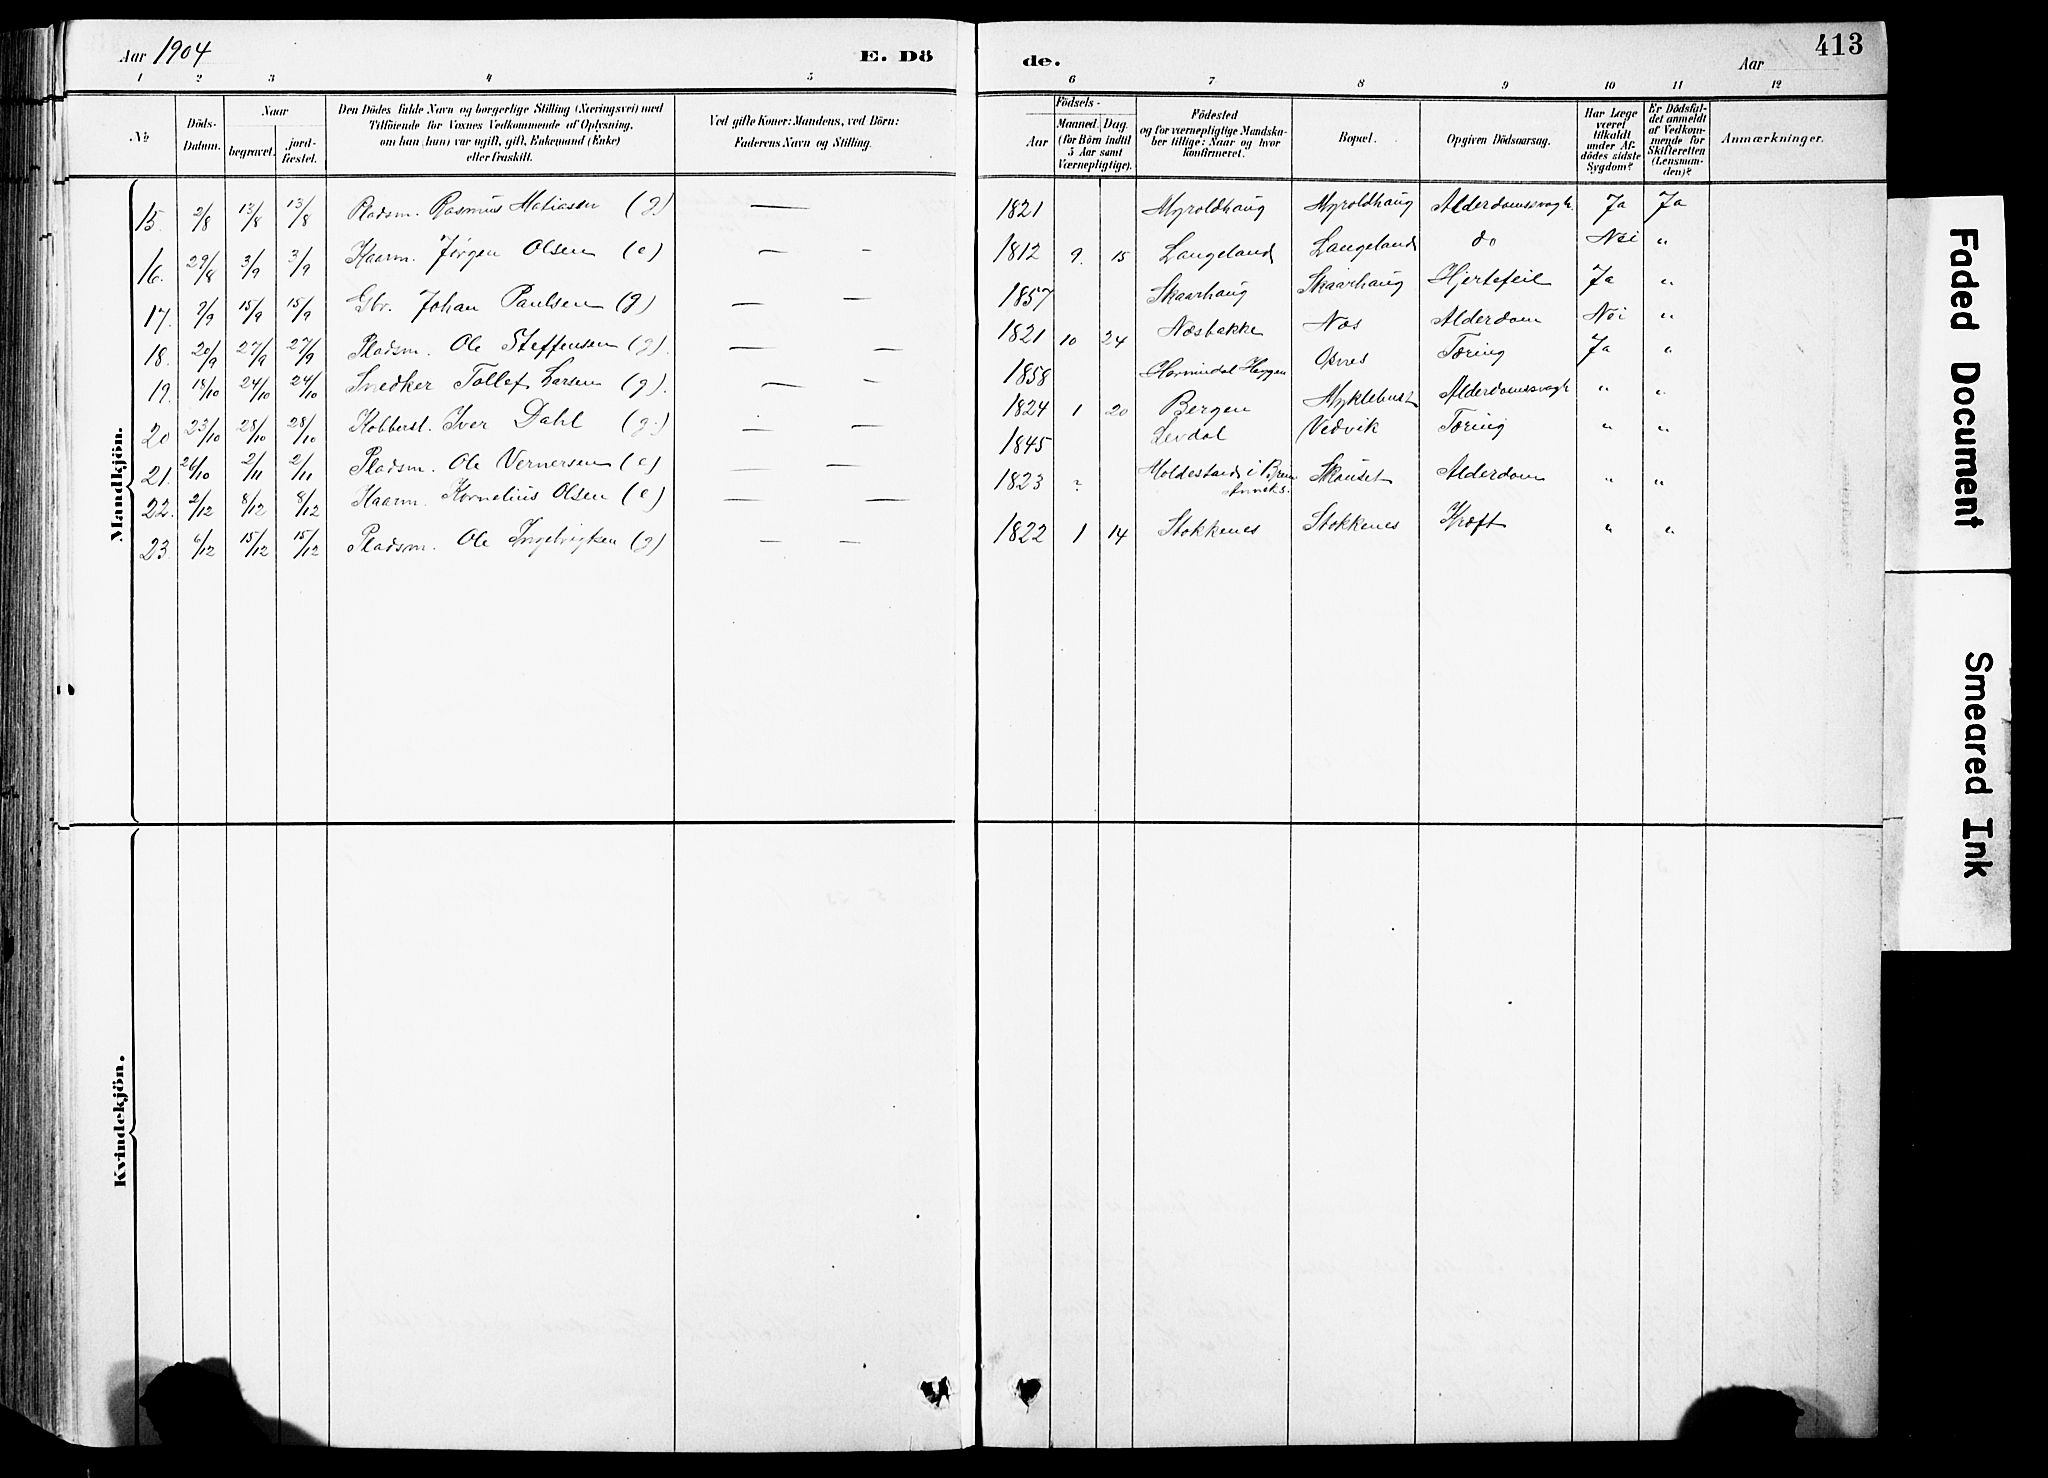 Aar 1904
E. Dö
de.
Aar
413
1 2 3 4 5 6 7 8 9 10 11 12
No
Döds-Datum.
Naar
begravet.
jord-fæstet.
Den Dödes fulde Navn og borgerlige Stilling (Næringsvei) med Tilföiende for Voxnes Vedkommende af Oplysning, om han (hun) var ugift, gift, Enkemand (Enke) eller fraskilt.
Ved gifte Koner: Mandens, ved Börn: Faderens Navn og Stilling.
Födsels-
Aar
Maaned.
Dag.
(for Börn indtil 5 Aar samt Værnepligtige).
Födested og for værnepligtige Mandskaber tillige: Naar og hvor konfirmeret.
Bopæl.
Opgiven Dödsaarsag.
Har Læge været tilkaldt under Afdödes sidste Sygdom?
Er Dödsfaldet anmeldt af Vedkommende for Skifteretten (Lensmanden)?
Anmærkninger.
Mandkjön.
15. 2/8 13/8 13/8 Pladsm. Rasmus Matiasen (g.) — 1821 Myroldhaug Myroldhaug Alderdomssvagh. Ja Ja
16. 29/8 3/9 3/9 Kaarm. Jørgen Olsen (e) — — 1812 9. 15 Langeland Langeland do Nei "
17. 9/9 15/9 15/9 Gbr. Johan Paulsen (g) — — 1857 Skaarhaug Skaarhaug Hjertefeil Ja "
18. 20/9 27/9 27/9 Pladsm. Ole Steffensen (g). — — 1821 10 24 Næsbakke Næs Alderdom Nei "
19. 18/10 24/10 24/10 Snedker Tollef Larsen (g). — — 1858 Hornindal Heggen Osnes Tæring Ja "
20 23/10 28/10 28/10 Kobberst. Iver Dahl (g.) — — 1824 1 20 Bergen Myklebust Alderdomssvagh " "
21. 26/10 2/11 2/11 Pladsm. Ole Vernersen (e) — — 1845 Levdal Vedvik Tæring " "
22. 2/12 8/12 8/12 Kaarm. Kornelius Olsen (e) — — 1823 ? Moldestad i Brem Annex. Skauset Alderdom " "
23. 6/12 15/12 15/12 Pladsm. Ole Ingebrigtsen (g) — — 1822 1 14 Stokkenes Stokkenes Kræft " "
Kvindekjön.
Faded Document
Smeared Ink